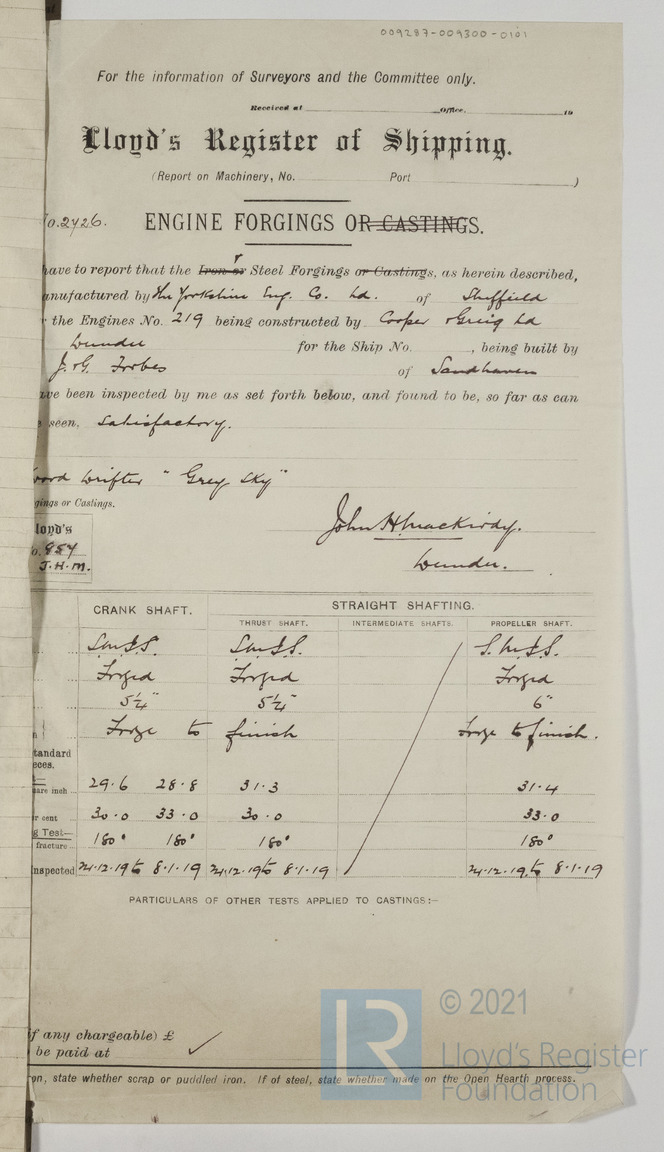 009287-009300-0101
For the information of Surveyors and the Committee only.
Received at Office. 19
Lloyd's Register of Shipping.
(Report on Machinery, No. Port )
No. 2426.
ENGINE FORGINGS OR CASTINGS.
have to report that the Iron or Steel Forgings or Castings, as herein described,
anufactured by the Yorkshire Eng. Co. Ld. of Sheffield
the Engines No. 219 being constructed by Cooper & Greig Ld
Dundee for the Ship No. , being built by
J. & G. Forbes of Sandhaven
ave been inspected by me as set forth below, and found to be, so far as can
seen, satisfactory.
wood drifter "Grey Sky"
gings or Castings.
John H. Mackirdy.
Dundee.
loyd's
o. 854
J.H.M.
CRANK SHAFT. STRAIGHT SHAFTING.
THRUST SHAFT. INTERMEDIATE SHAFTS. PROPELLER SHAFT.
S.M.I.S. S.M.I.S. S.M.I.S.
Forged Forged Forged
5¼" 5¼" 6"
Forge to finish Forge to finish.
tandard
eces.
uare inch 29.6 28.8 31.3 31.4
r cent 30.0 33.0 30.0 33.0
g Test—
fracture 180° 180° 180° 180°
nspected 24.12.19 to 8.1.19 24.12.19 to 8.1.19 24.12.19 to 8.1.19
PARTICULARS OF OTHER TESTS APPLIED TO CASTINGS:—
if any chargeable) £
be paid at
ron, state whether scrap or puddled iron. If of steel, state whether made on the Open Hearth process.
LR
© 2021
Lloyd's Register
Foundation